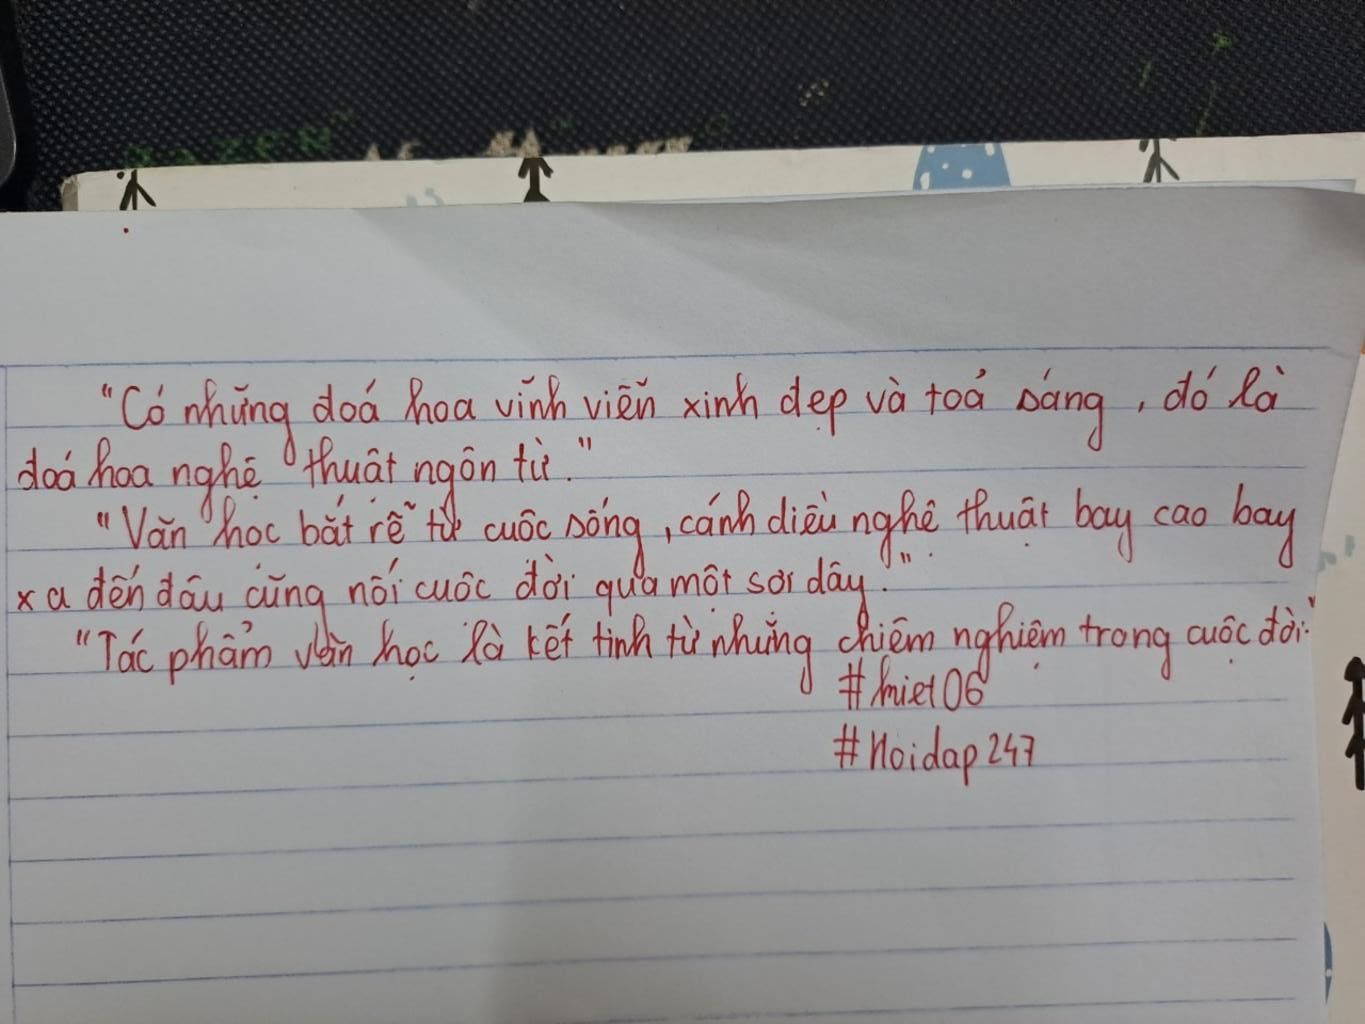 "Có những đoá hoa vĩnh viễn xinh đẹp và toả sáng, đó là
đoá hoa nghệ thuật ngôn từ."
"Văn học bắt rễ từ cuộc sống, cánh diều nghệ thuật bay cao bay
xa đến đâu cũng nối cuộc đời qua một sợi dây."
"Tác phẩm văn học là kết tinh từ những chiêm nghiệm trong cuộc đời."
#06
#Hoidap247